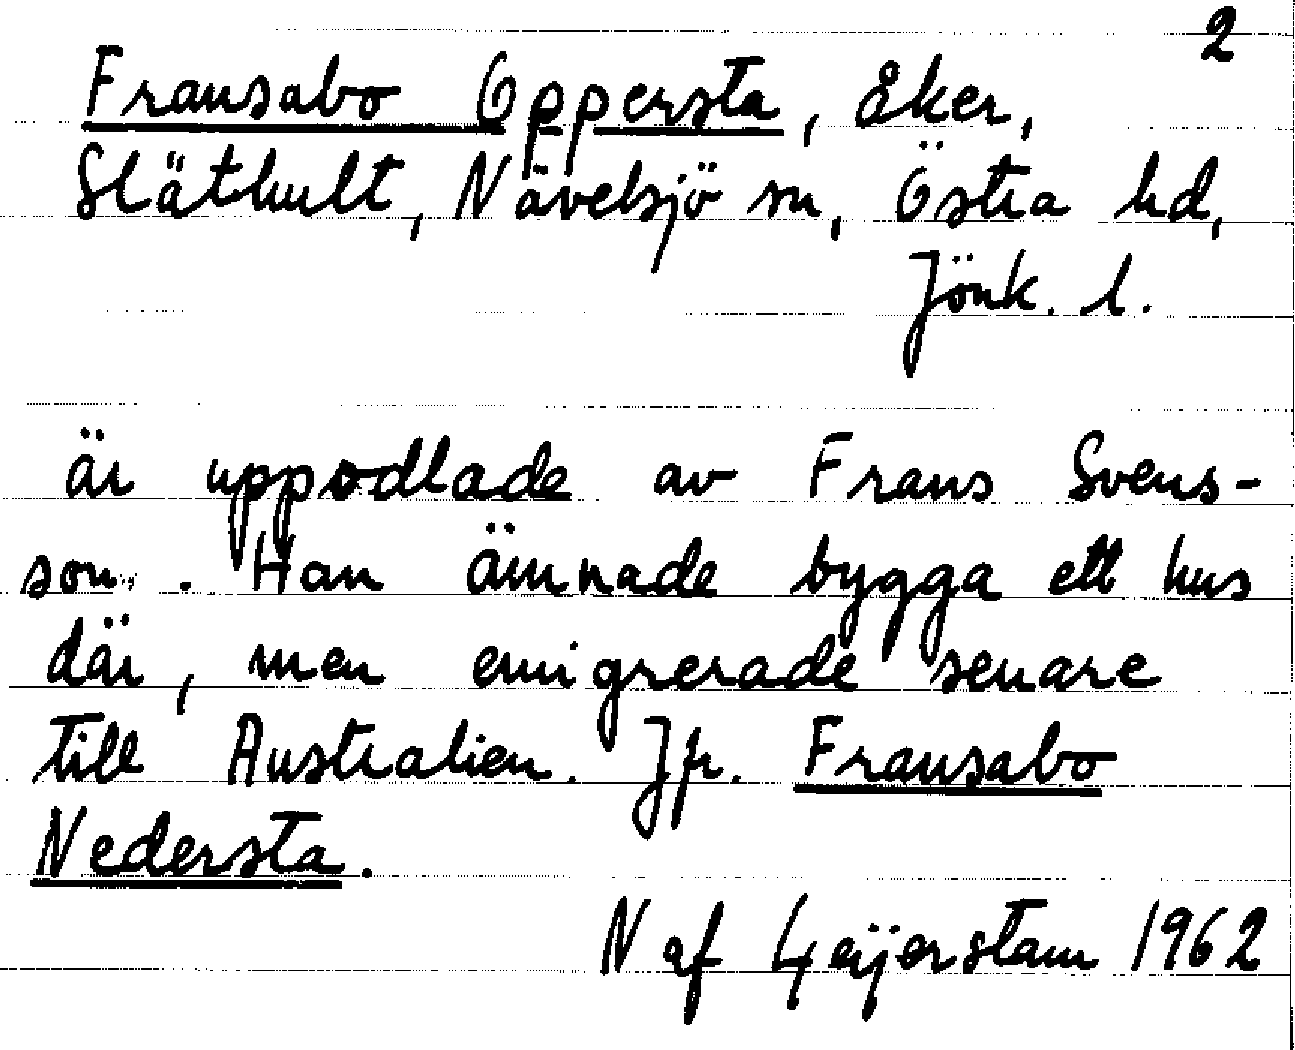 2
Fransabo Oppersta, åker,
Släthult, Nävelsjö sn, Östra hd,
Jönk. l.
är uppodlade av Frans Svens-
son. Han ämnade bygga ett hus
där, men emigrerade senare
till Australien. Jfr. Fransabo
Nedersta.
N af Geijerstam 1962